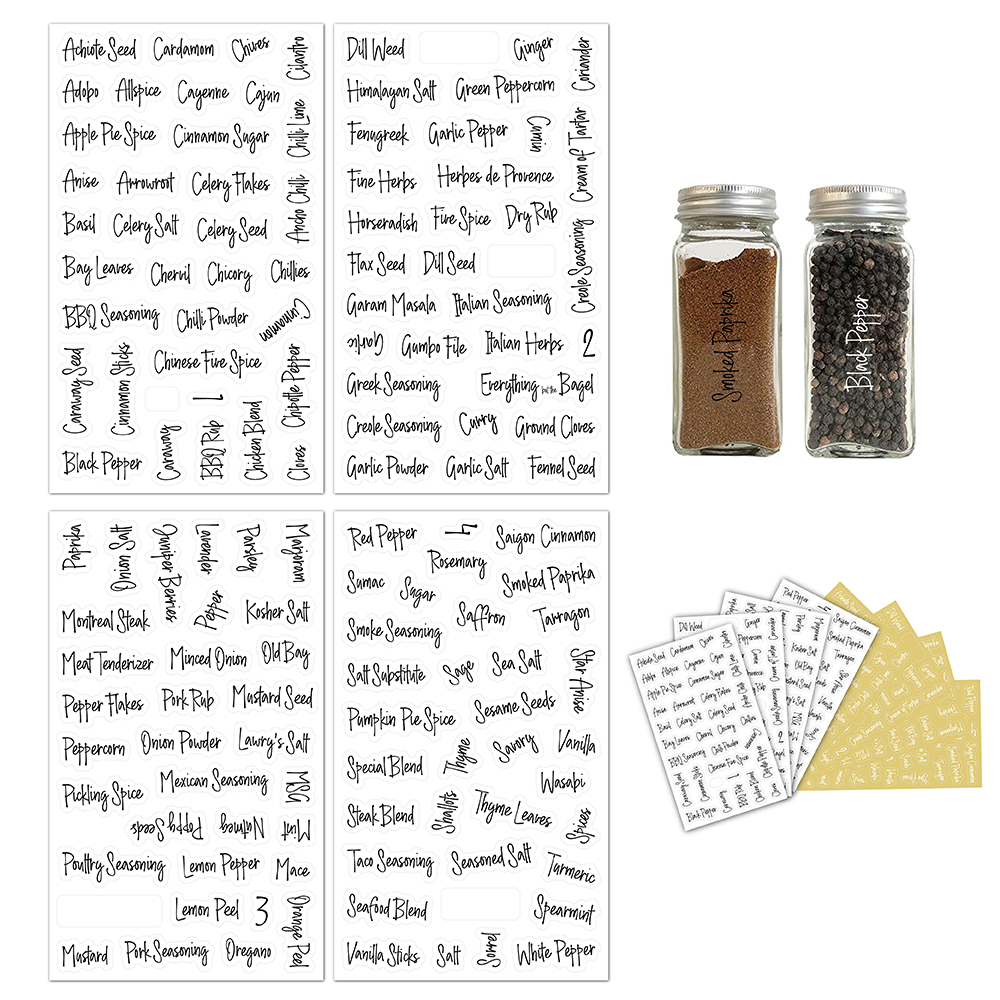 Achiote Seed Cardamom Chives Cilantro
Adobo Allspice Cayenne Cajun
Apple Pie Spice Cinnamon Sugar Chilli Lime
Anise Arrowroot Celery Flakes Ancho Chilli
Basil Celery Salt Celery Seed
Bay Leaves Chervil Chicory Chillies
BBQ Seasoning Chilli Powder Cinnamon
Caraway Seed Cinnamon Sticks Chinese Five Spice Chipotle Pepper
Black Pepper Caraway BBQ Rub 1 Chicken Blend Cloves
Dill Weed Ginger Coriander
Himalayan Salt Green Peppercorn
Fenugreek Garlic Pepper Cumin Cream of Tartar
Fine Herbs Herbes de Provence
Horseradish Five Spice Dry Rub Creole Seasoning
Flax Seed Dill Seed
Garam Masala Italian Seasoning
Garlic Gumbo File Italian Herbs 2
Greek Seasoning Everything but the Bagel
Creole Seasoning Curry Ground Cloves
Garlic Powder Garlic Salt Fennel Seed
Smoked Paprika
Black Pepper
Paprika Onion Salt Juniper Berries Lavender Parsley Marjoram
Montreal Steak Pepper Kosher Salt
Meat Tenderizer Minced Onion Old Bay
Pepper Flakes Pork Rub Mustard Seed
Peppercorn Onion Powder Lawry's Salt
Pickling Spice Mexican Seasoning MSG
Poppy Seeds Nutmeg Mint
Poultry Seasoning Lemon Pepper Mace
Lemon Peel 3 Orange Peel
Mustard Pork Seasoning Oregano
Red Pepper 4 Saigon Cinnamon
Rosemary
Sumac Sugar Smoked Paprika
Smoke Seasoning Saffron Tarragon
Salt Substitute Sage Sea Salt Star Anise
Pumpkin Pie Spice Sesame Seeds
Special Blend Thyme Savory Vanilla
Wasabi
Steak Blend Shallots Thyme Leaves Spices
Taco Seasoning Seasoned Salt Turmeric
Seafood Blend Spearmint
Vanilla Sticks Salt Sorrel White Pepper